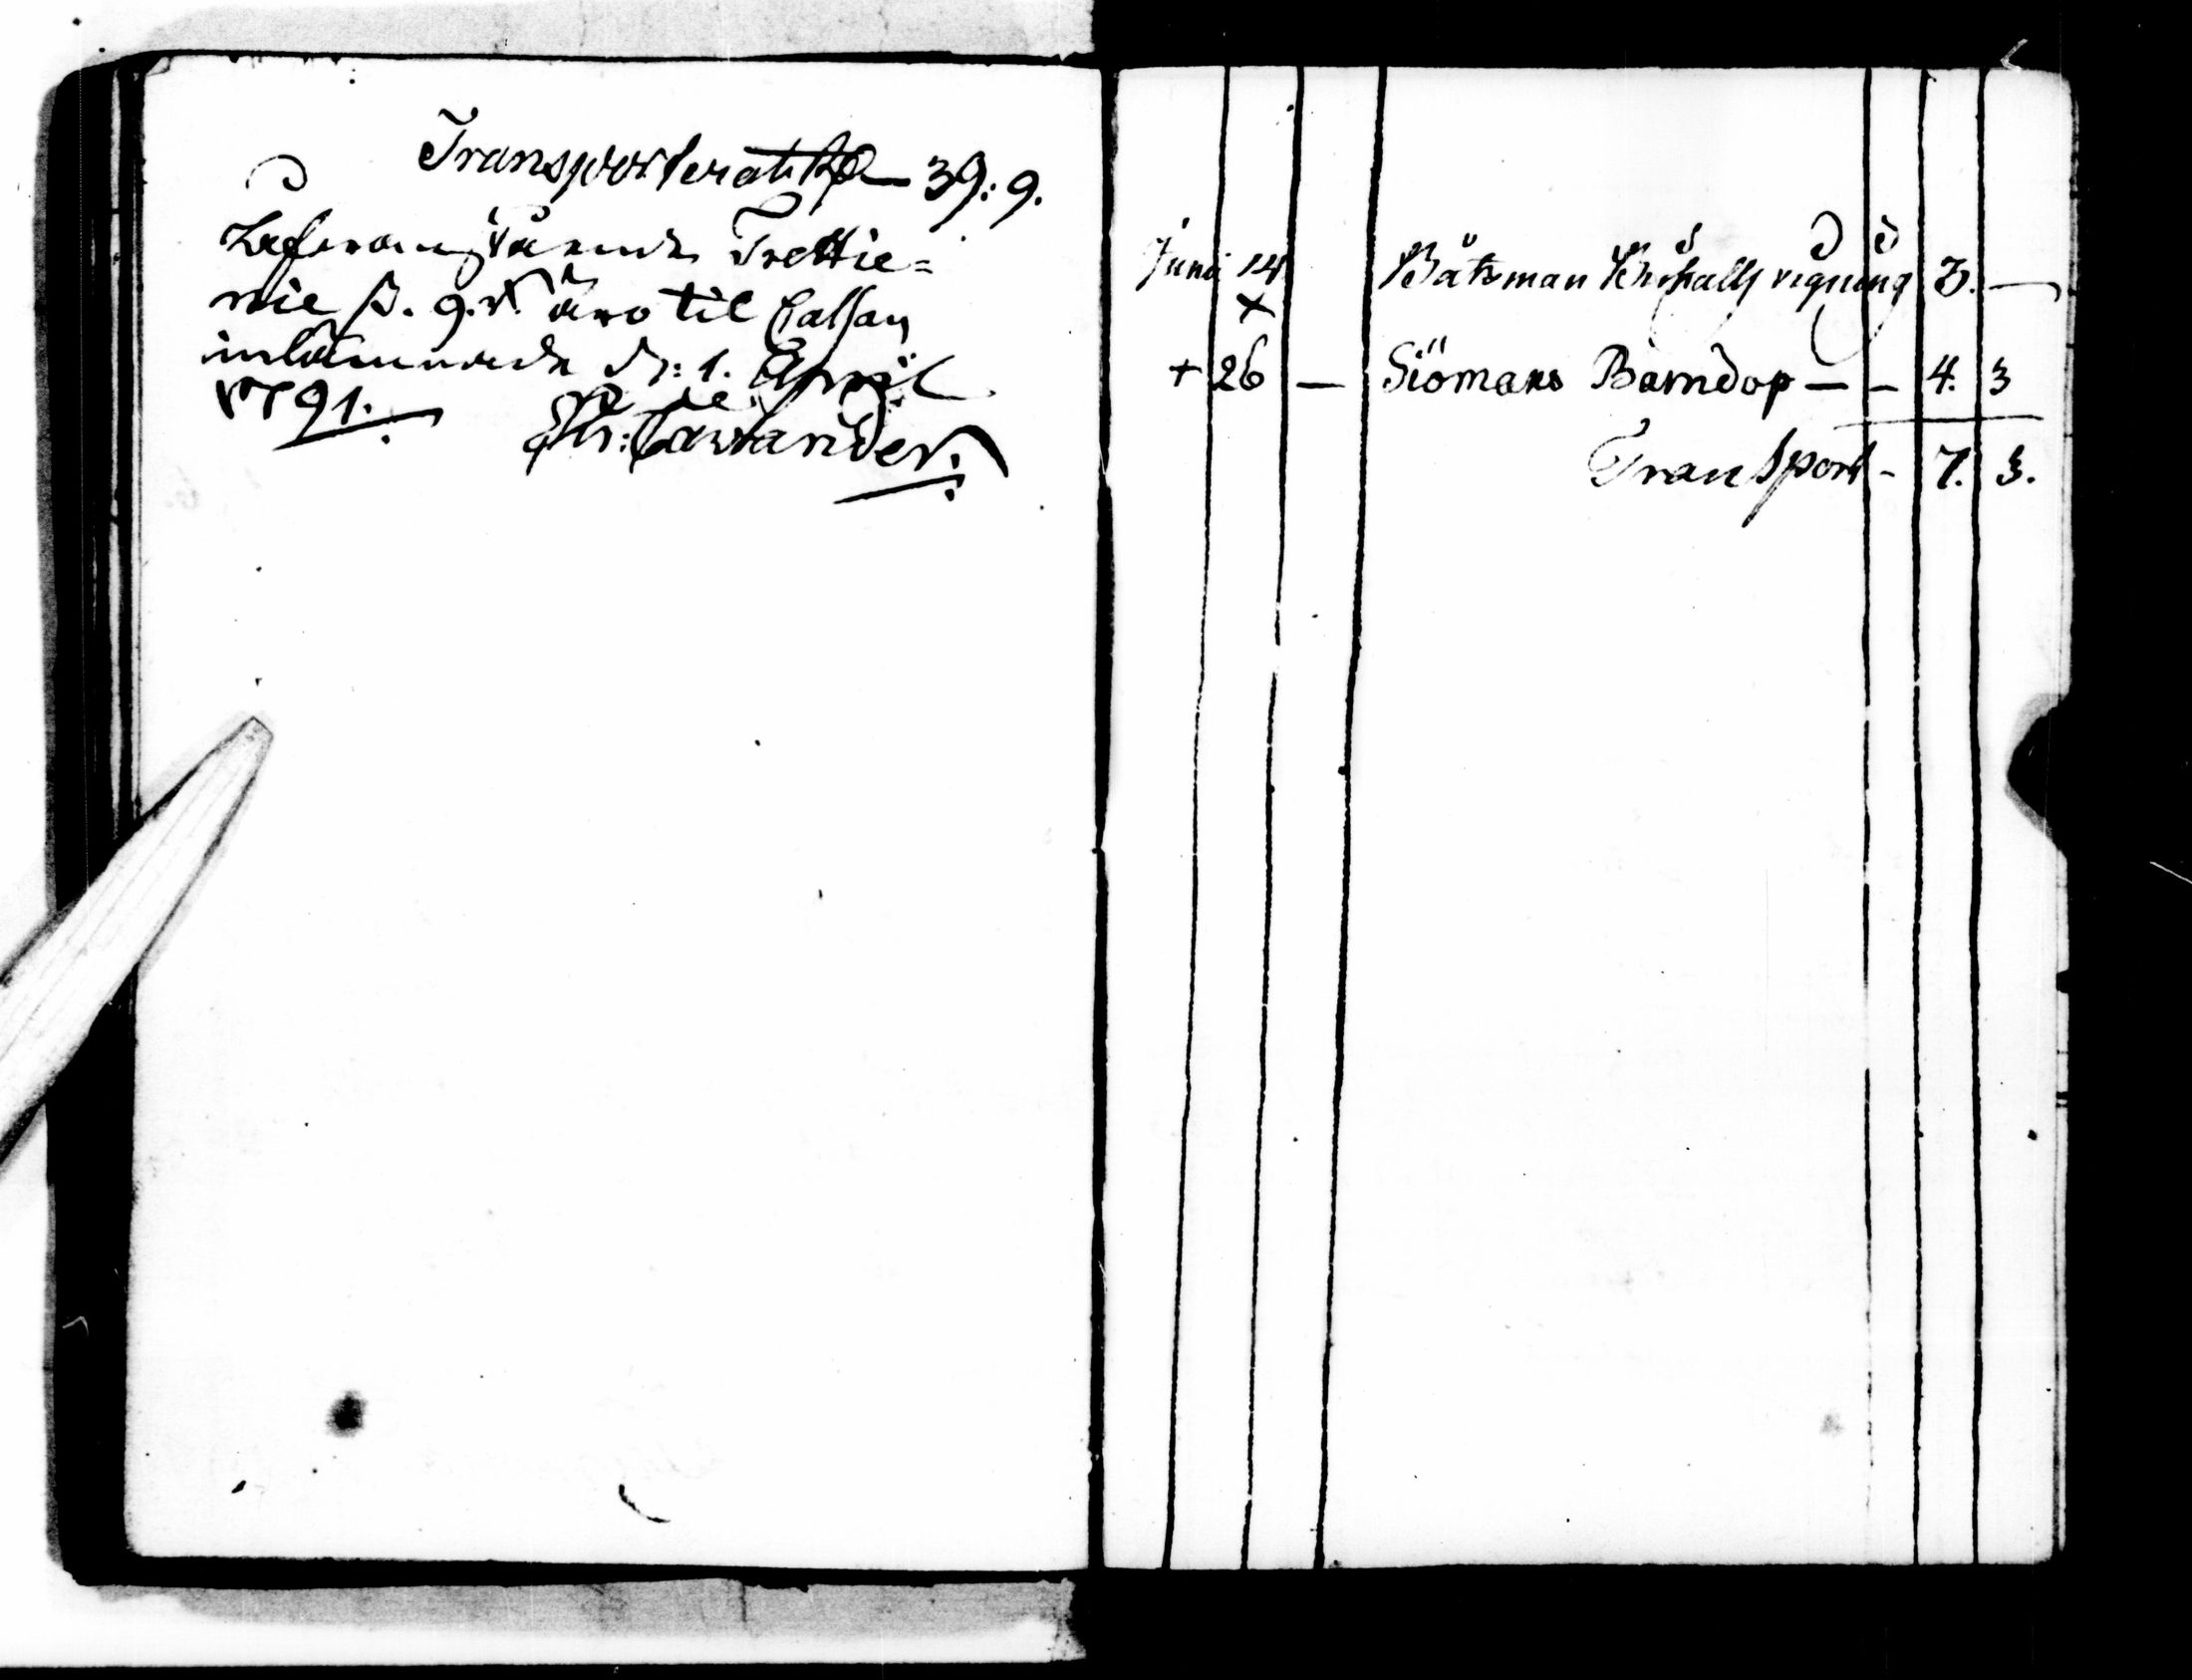 Transporterat Rd — 39: 9.
Trettie=
nie ß. 9. r. äro til Cassan
inlämnade d: 1. April
1791.
Juni 14 Båtsman vigning 3. —
x
+ 26 — Siömans Barndop — — 4. 3
Transport - 7. 3.